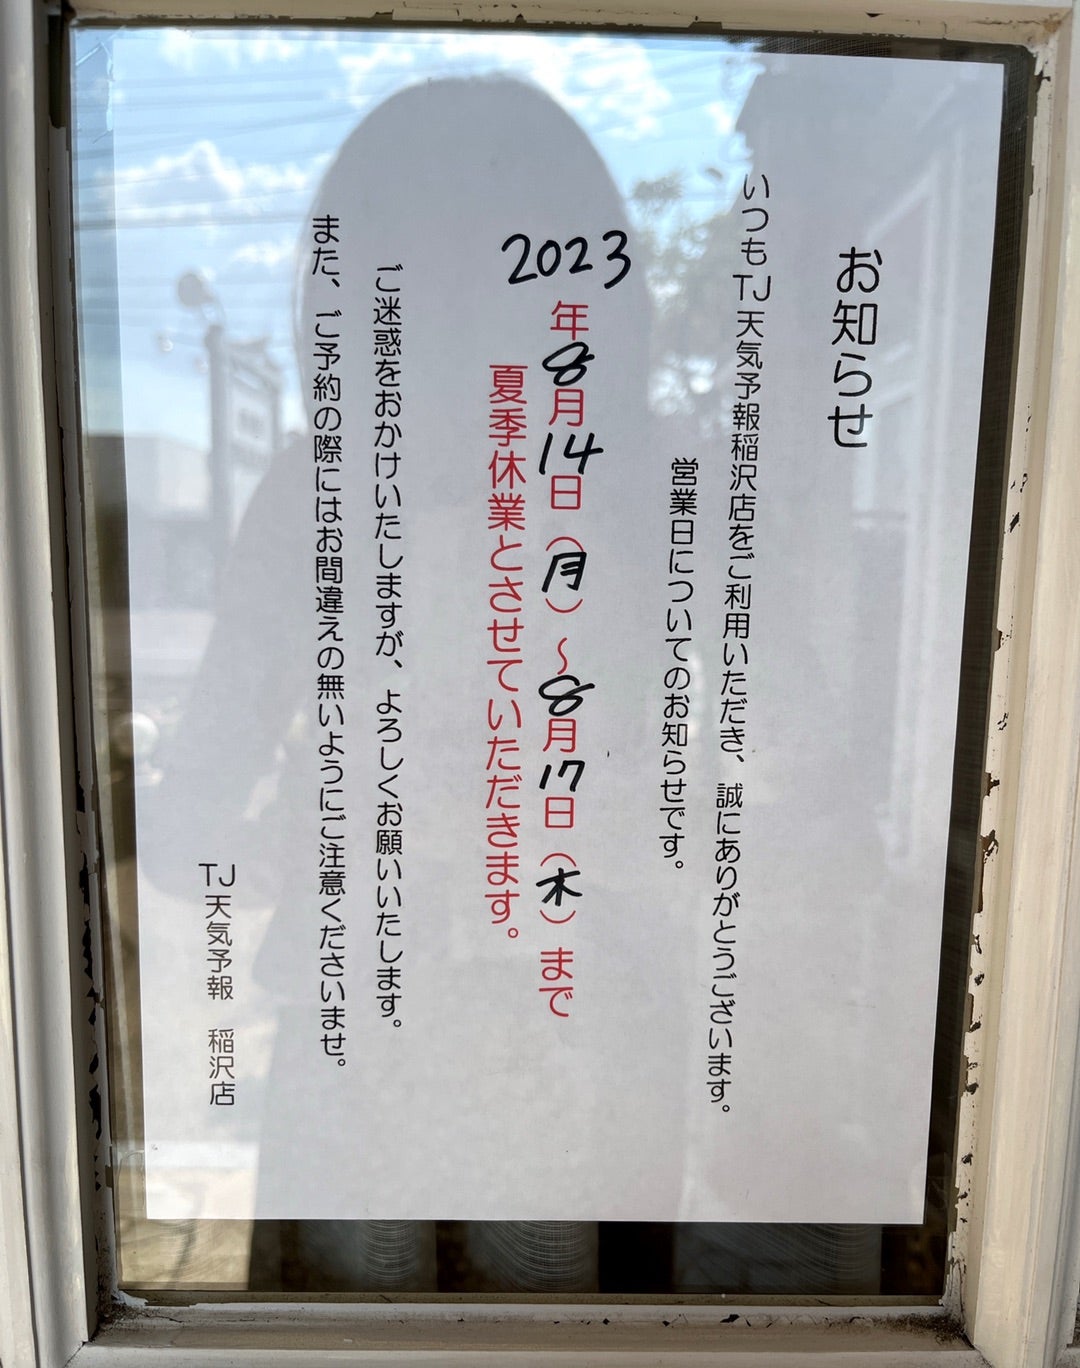 お知らせ
いつもTJ天気予報稲沢店をご利用いただき、誠にありがとうございます。
営業日についてのお知らせです。
2023年8月14日(月)～8月17日(木)まで
夏季休業とさせていただきます。
ご迷惑をおかけいたしますが、よろしくお願いいたします。
また、ご予約の際にはお間違えの無いようにご注意くださいませ。
TJ天気予報　稲沢店